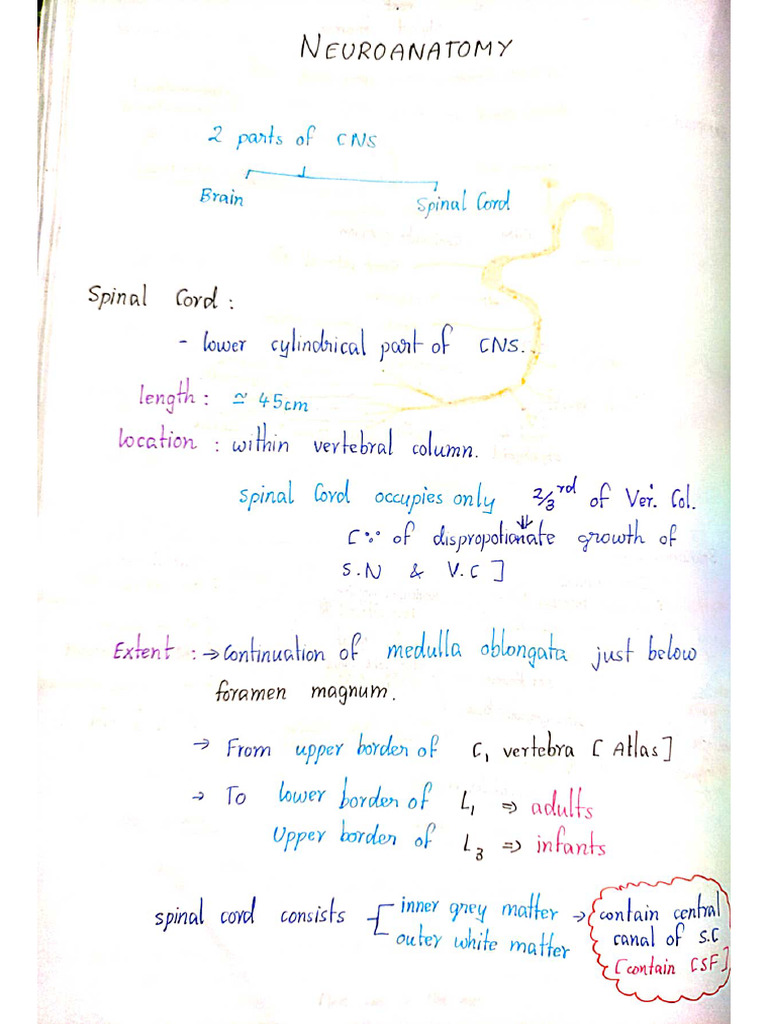 NEUROANATOMY
2 parts of CNS
Brain
Spinal Cord
Spinal Cord :
- lower cylindrical part of CNS.
length : ≃ 45cm
location : within vertebral column.
Spinal Cord occupies only 2/3rd of Ver. Col.
[∵ of dispropotionate growth of
S.N & V.C]
Extent : → Continuation of medulla oblongata just below
foramen magnum.
→ From upper border of C1 vertebra [Atlas]
→ To lower border of L1 ⇒ adults
Upper border of L3 ⇒ infants
spinal cord consists inner grey matter → contain central
outer white matter canal of S.C
[contain CSF]